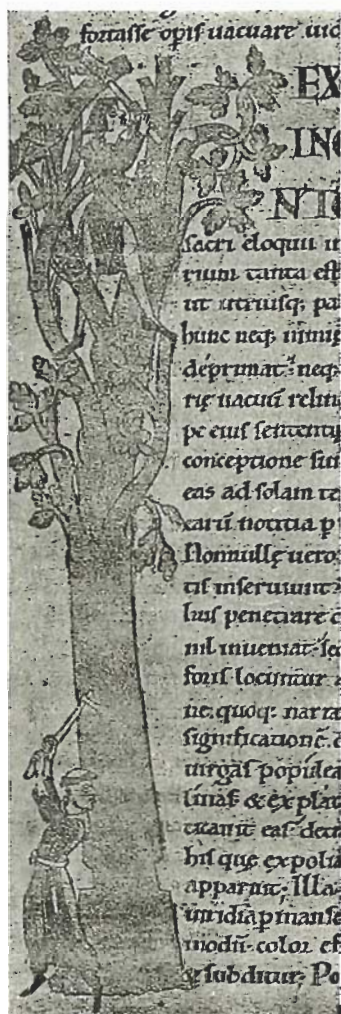 fortasse opis uacuare uid
EX
INQ
NTO
sacri eloquii in
rium tanta eff
ut utriusq; pa
hunc neq; nimi
deprimat: neq;
rię uacuū relin
pe eius sententię
conceptione sui
eas ad solam te
carū notitia p
Nonnullę uero
tis inseruiunt:
lius penetrare c
nil inueniat: sed
foris locuntur a
ne. quoq; narra
significationē. d
uirgas populea
linas & ex plat
ticauit eas: detr
his quę expolia
apparuit; Illa
uiridia pmanse
modū color ef
& subditur; Po